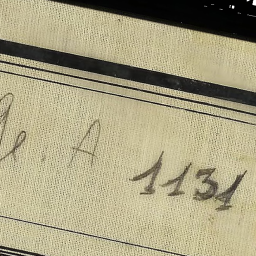 Ge. A 1131